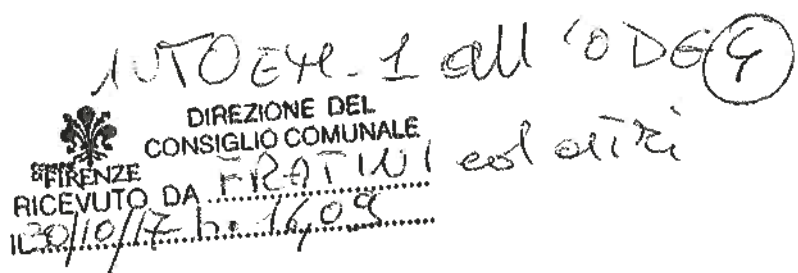 AUTOEM. 1 all'ODG 4
DIREZIONE DEL
CONSIGLIO COMUNALE
FIRENZE
RICEVUTO DA FRATINI ed altri
IL 30/10/17 h. 16,09